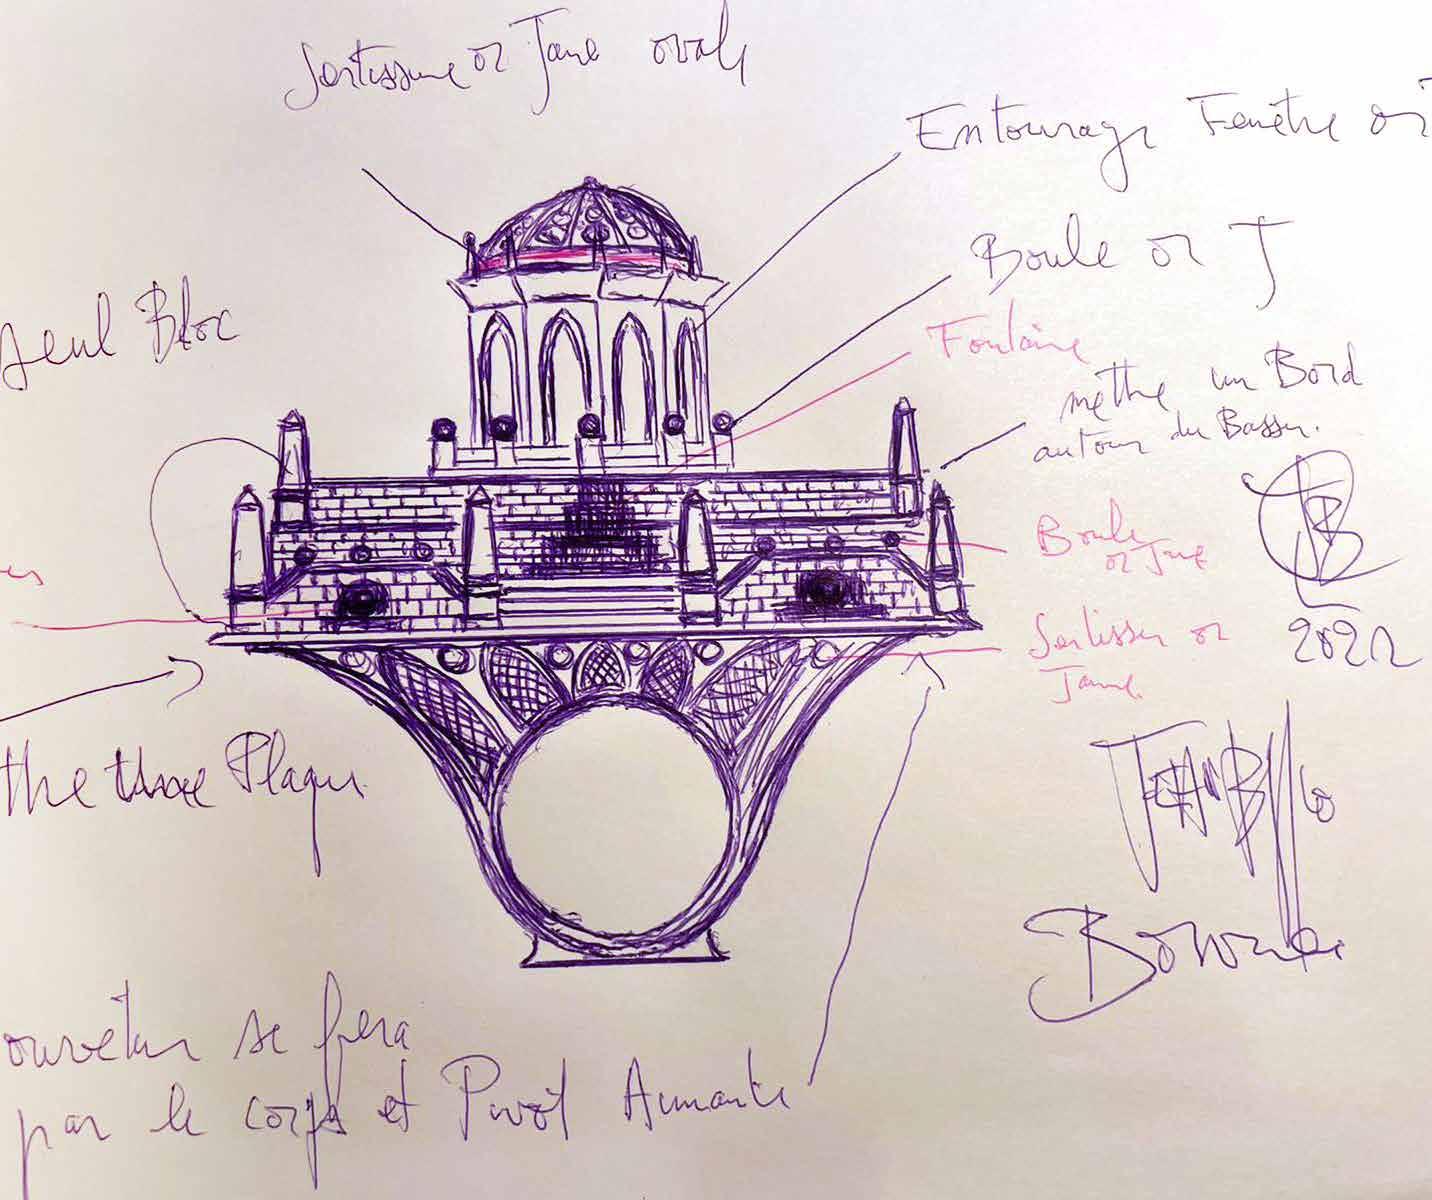 Sertissure or Jaune ovale
Entourage Fenêtre or J
Boule or J
seul Bloc
Fontaine
mettre un Bord
autour du Bassin.
Boule
or Jaune
es
Sertisser or
Jaune.
2021
Plaque
Jean Boggio
ouverture se fera
par le corps et Pivot Aimanté